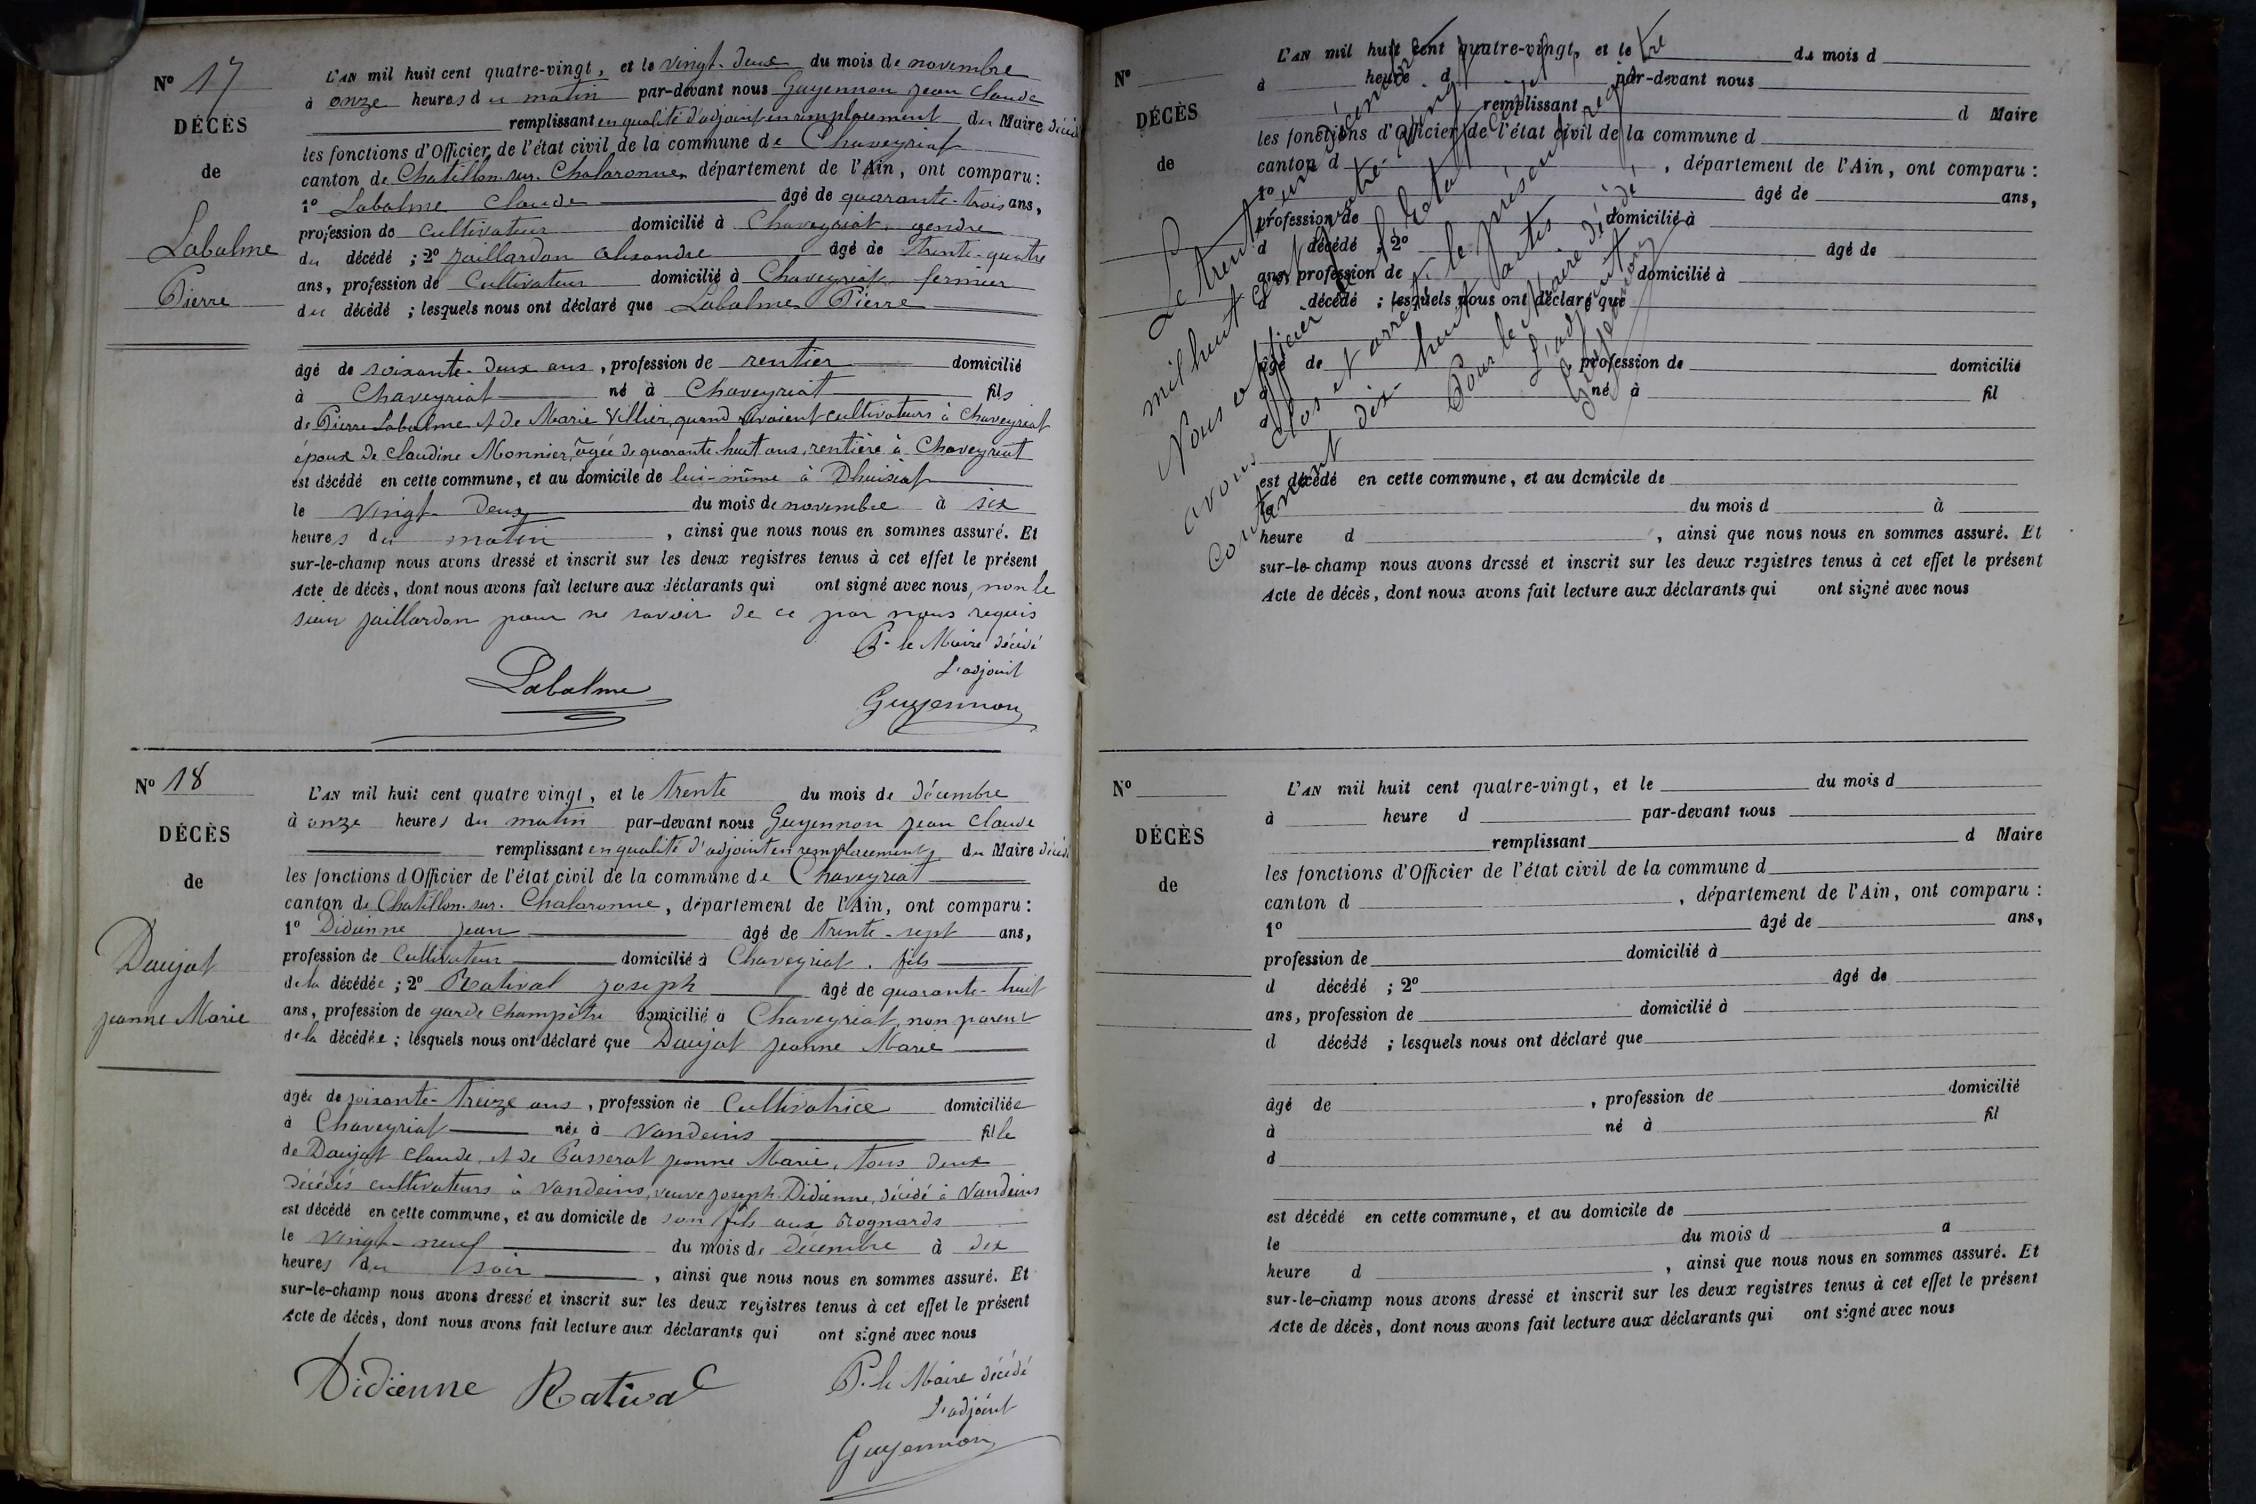 N° 17
DÉCÈS
de
Labalme
Pierre
L'AN mil huit cent quatre-vingt, et le vingt-deux du mois de novembre
à onze heures du matin par-devant nous Guyennon jean claude
remplissant en qualité d'adjoint en remplacement du Maire décédé
les fonctions d'Officier de l'état civil de la commune de Chaveyriat
canton de Chatillon-sur-Chalaronne, département de l'Ain, ont comparu :
1° Labalme Claude âgé de quarante-trois ans,
profession de cultivateur domicilié à Chaveyriat, gendre
du décédé ; 2° jaillardon alexandre âgé de trente-quatre
ans, profession de Cultivateur domicilié à Chaveyriat fermier
du décédé ; lesquels nous ont déclaré que Labalme Pierre
âgé de soixante-deux ans, profession de rentier domicilié
à Chaveyriat né à Chaveyriat fils
de Pierre Labalme et de Marie Villier, quand vivaient cultivateurs à Chaveyriat
époux de Claudine Monnier, âgée de quarante-huit ans, rentière à Chaveyriat
est décédé en cette commune, et au domicile de lui-même à Dhuisiat
le vingt-deux du mois de novembre à six
heures du matin, ainsi que nous nous en sommes assuré. Et
sur-le-champ nous avons dressé et inscrit sur les deux registres tenus à cet effet le présent
Acte de décès, dont nous avons fait lecture aux déclarants qui ont signé avec nous, non le
sieur jaillardon pour ne savoir de ce par nous requis
P. le Maire décédé
L'adjoint
Labalme
Guyennon
N° 18
DÉCÈS
de
Daujat
jeanne Marie
L'AN mil huit cent quatre vingt, et le trente du mois de décembre
à onze heures du matin par-devant nous Guyennon jean claude
remplissant en qualité d'adjoint en remplacement du Maire décédé
les fonctions d'Officier de l'état civil de la commune de Chaveyriat
canton de Chatillon-sur-Chalaronne, département de l'Ain, ont comparu :
1° Didienne jean âgé de trente-sept ans,
profession de Cultivateur domicilié à Chaveyriat, fils
de la décédée ; 2° Ratival joseph âgé de quarante-huit
ans, profession de garde champêtre domicilié à Chaveyriat, non parent
de la décédée ; lesquels nous ont déclaré que Daujat jeanne Marie
âgée de soixante-treize ans, profession de Cultivatrice domiciliée
à Chaveyriat née à Vandeins fille
de Daujat Claude et de Passerat jeanne Marie, tous deux
décédés cultivateurs à Vandeins, veuve joseph Didienne, décédé à Vandeins
est décédé en cette commune, et au domicile de son fils aux Rognards
le vingt-neuf du mois de décembre à dix
heures du soir, ainsi que nous nous en sommes assuré. Et
sur-le-champ nous avons dressé et inscrit sur les deux registres tenus à cet effet le présent
Acte de décès, dont nous avons fait lecture aux déclarants qui ont signé avec nous
Didienne Ratival
P. le Maire décédé
L'adjoint
Guyennon
N°
DÉCÈS
de
L'AN mil huit cent quatre-vingt, et le du mois d
à heure d par-devant nous
remplissant d Maire
les fonctions d'Officier de l'état civil de la commune d
canton d , département de l'Ain, ont comparu :
1° âgé de ans,
profession de domicilié à
d décédé ; 2° âgé de
ans, profession de domicilié à
d décédé ; lesquels nous ont déclaré que
âgé de profession de domicilié
à né à fil
d
est décédé en cette commune, et au domicile de
le du mois d à
heure d , ainsi que nous nous en sommes assuré. Et
sur-le-champ nous avons dressé et inscrit sur les deux registres tenus à cet effet le présent
Acte de décès, dont nous avons fait lecture aux déclarants qui ont signé avec nous
Le trente un décembre
mil huit cent quatre-vingt
Nous officier de l'état civil
avons clos et arrêté le présent registre
contenant dix-huit actes
Pour le Maire décédé
L'adjoint
Guyennon
N°
DÉCÈS
de
L'AN mil huit cent quatre-vingt, et le du mois d
à heure d par-devant nous
remplissant d Maire
les fonctions d'Officier de l'état civil de la commune d
canton d , département de l'Ain, ont comparu :
1° âgé de ans,
profession de domicilié à
d décédé ; 2° âgé de
ans, profession de domicilié à
d décédé ; lesquels nous ont déclaré que
âgé de , profession de domicilié
à né à fil
d
est décédé en cette commune, et au domicile de
le du mois d a
heure d , ainsi que nous nous en sommes assuré. Et
sur-le-champ nous avons dressé et inscrit sur les deux registres tenus à cet effet le présent
Acte de décès, dont nous avons fait lecture aux déclarants qui ont signé avec nous